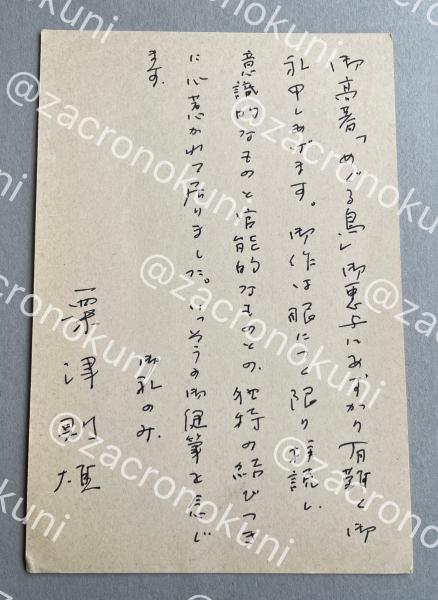 御高著「めぐる鳥」御恵与にあずかり有難く御
礼申しあげます。御作は眼につく限り拝読し、
意識的なものと官能的なものとの、独特の結びつき
に心惹かれて居りました。いっそうの御健筆を念じ
ます。
御礼のみ。
粟津則雄
@zacronokuni
@zacronokuni
@zacronokuni
@zacronokuni
@zacronokuni
@zacronokuni